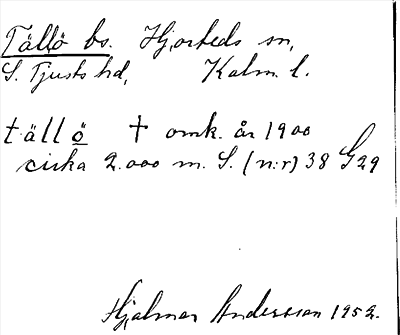 Tällö bs. Hjorteds sn,
S. Tjusts hd, Kalm. l.
tällö † omk. år 1900
cirka 2.000 m. S. (n:r) 38 G29
Hjalmar Andersson 1952.